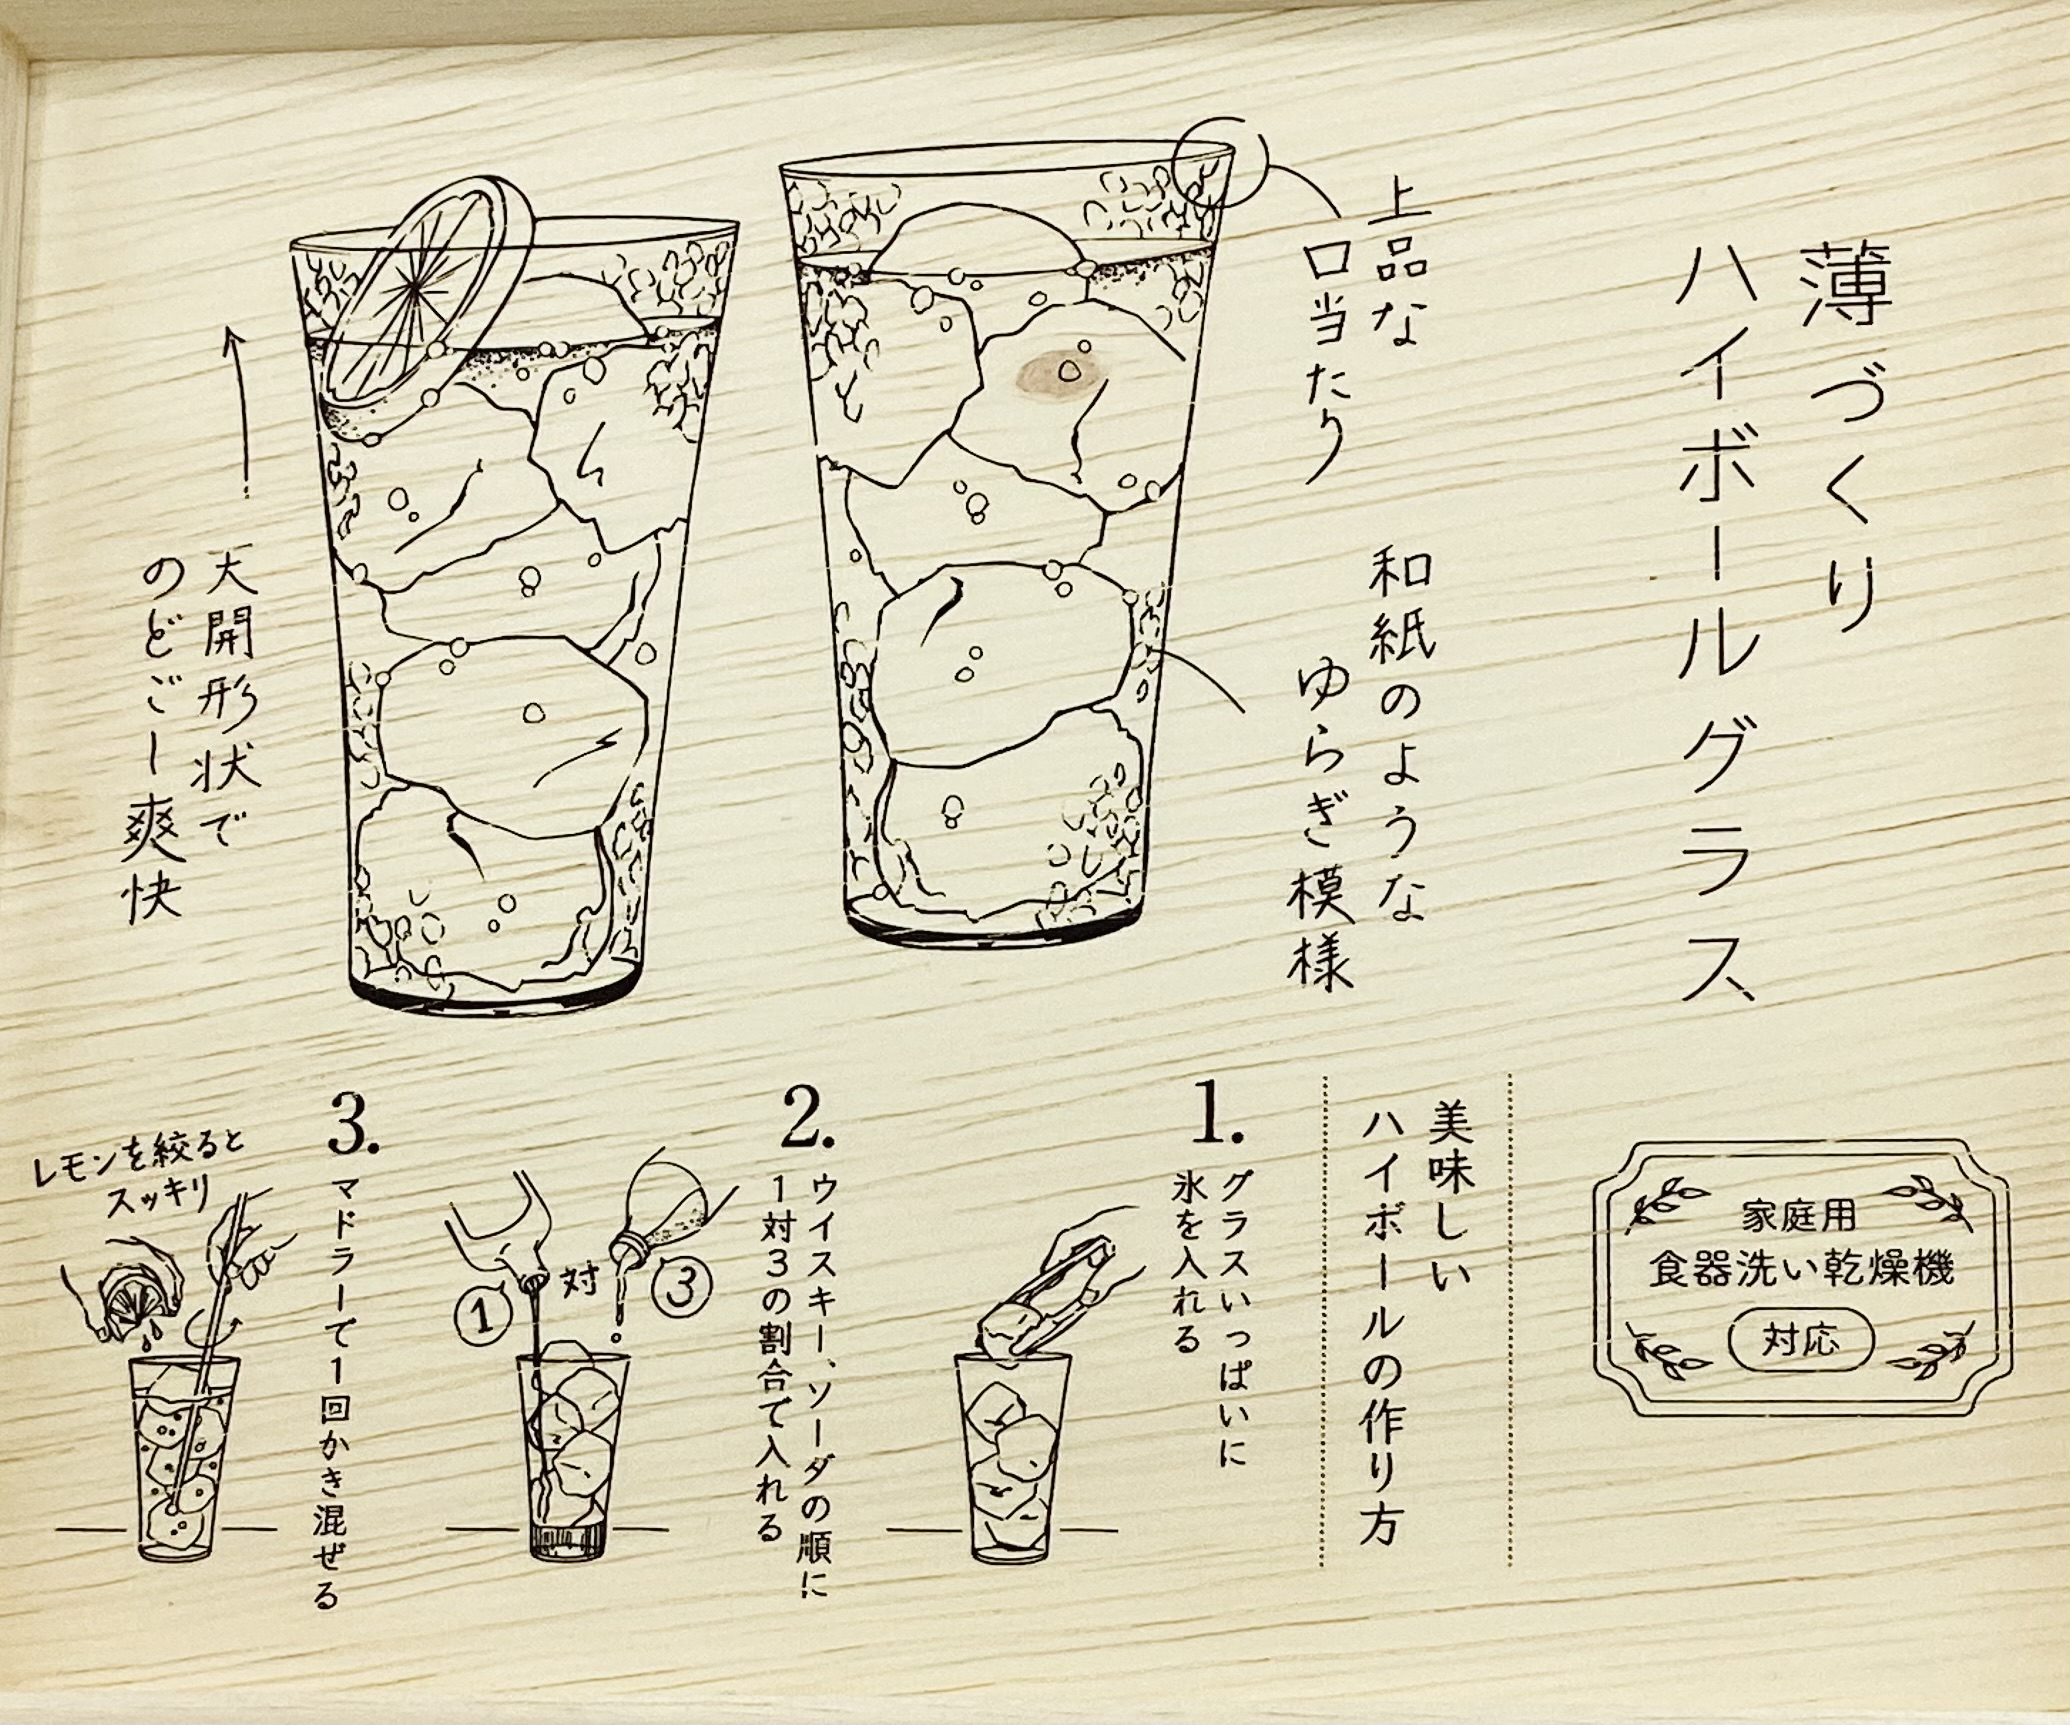 薄づくり
ハイボールグラス
上品な
口当たり
和紙のような
ゆらぎ模様
大開形状で
のどごし爽快
家庭用
食器洗い乾燥機
対応
美味しい
ハイボールの作り方
1.
グラスいっぱいに
氷を入れる
2.
ウイスキー、ソーダの順に
1対3の割合で入れる
① 対 ③
3.
マドラーで1回かき混ぜる
レモンを絞ると
スッキリ